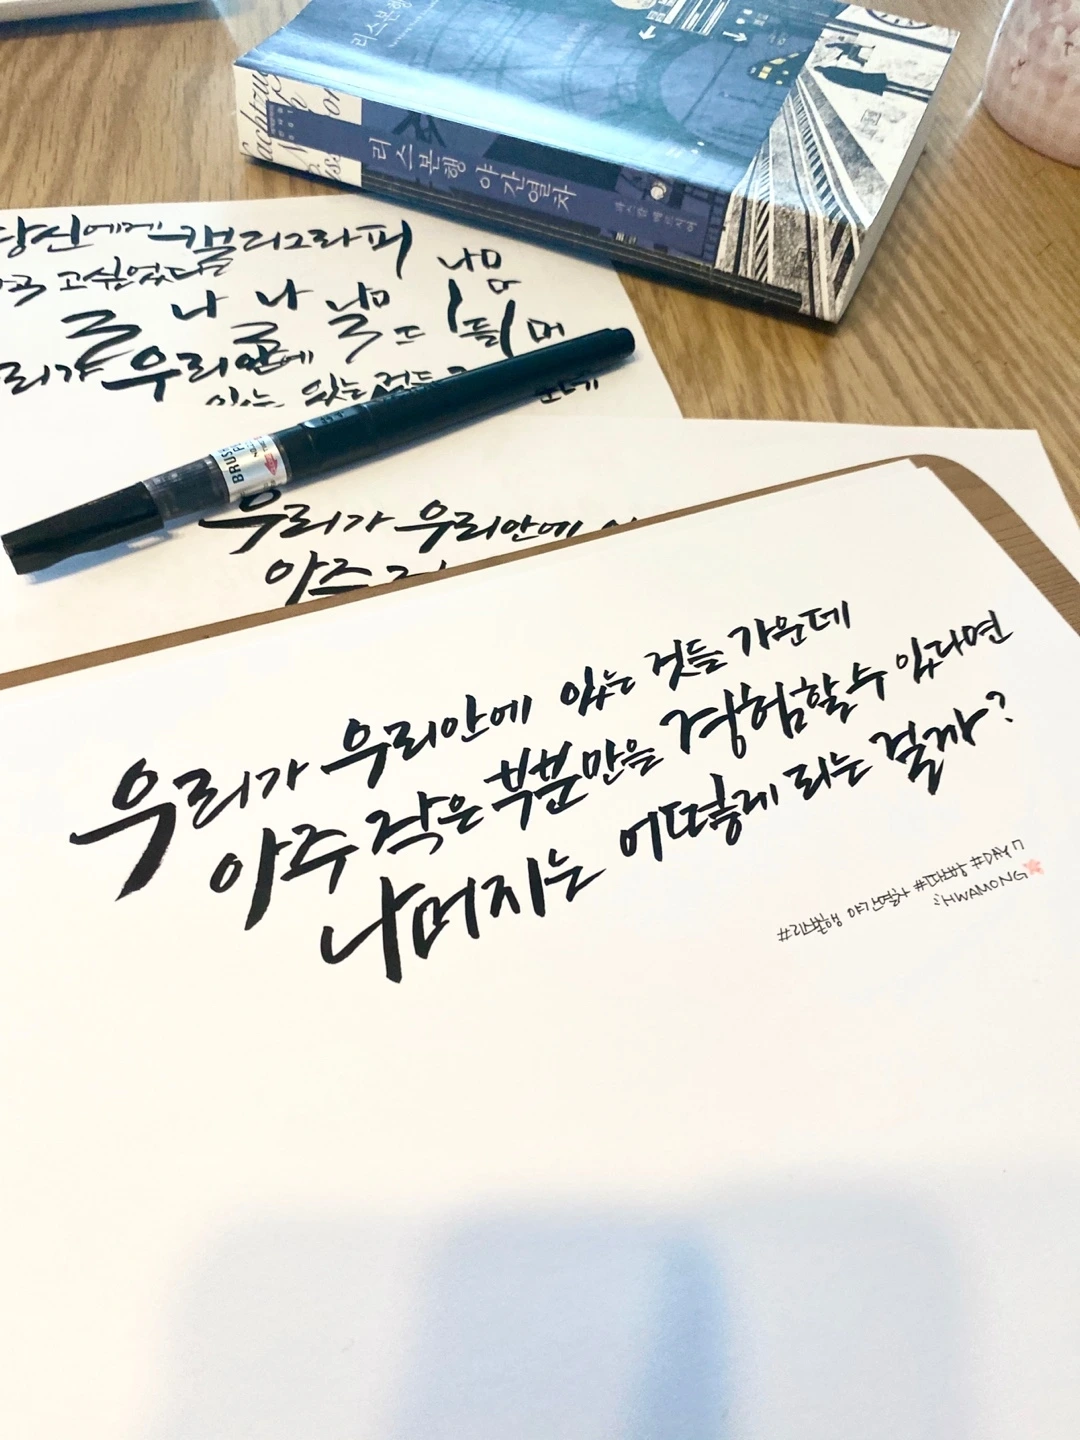 리스본행
리스본행 야간열차
파스칼 메르시어
당신에게 캘리그라피
고 싶었다
를 나 나 날 나 맘
를 드 들 머
리가 우리 안에
있는 있는 것들
BRUSH
우리가 우리 안에
아주
우리가 우리 안에 있는 것들 가운데
아주 작은 부분만을 경험할 수 있다면
나머지는 어떻게 되는 걸까?
#리스본행 야간열차 #따쓰방 #DAY7
HWAMONG